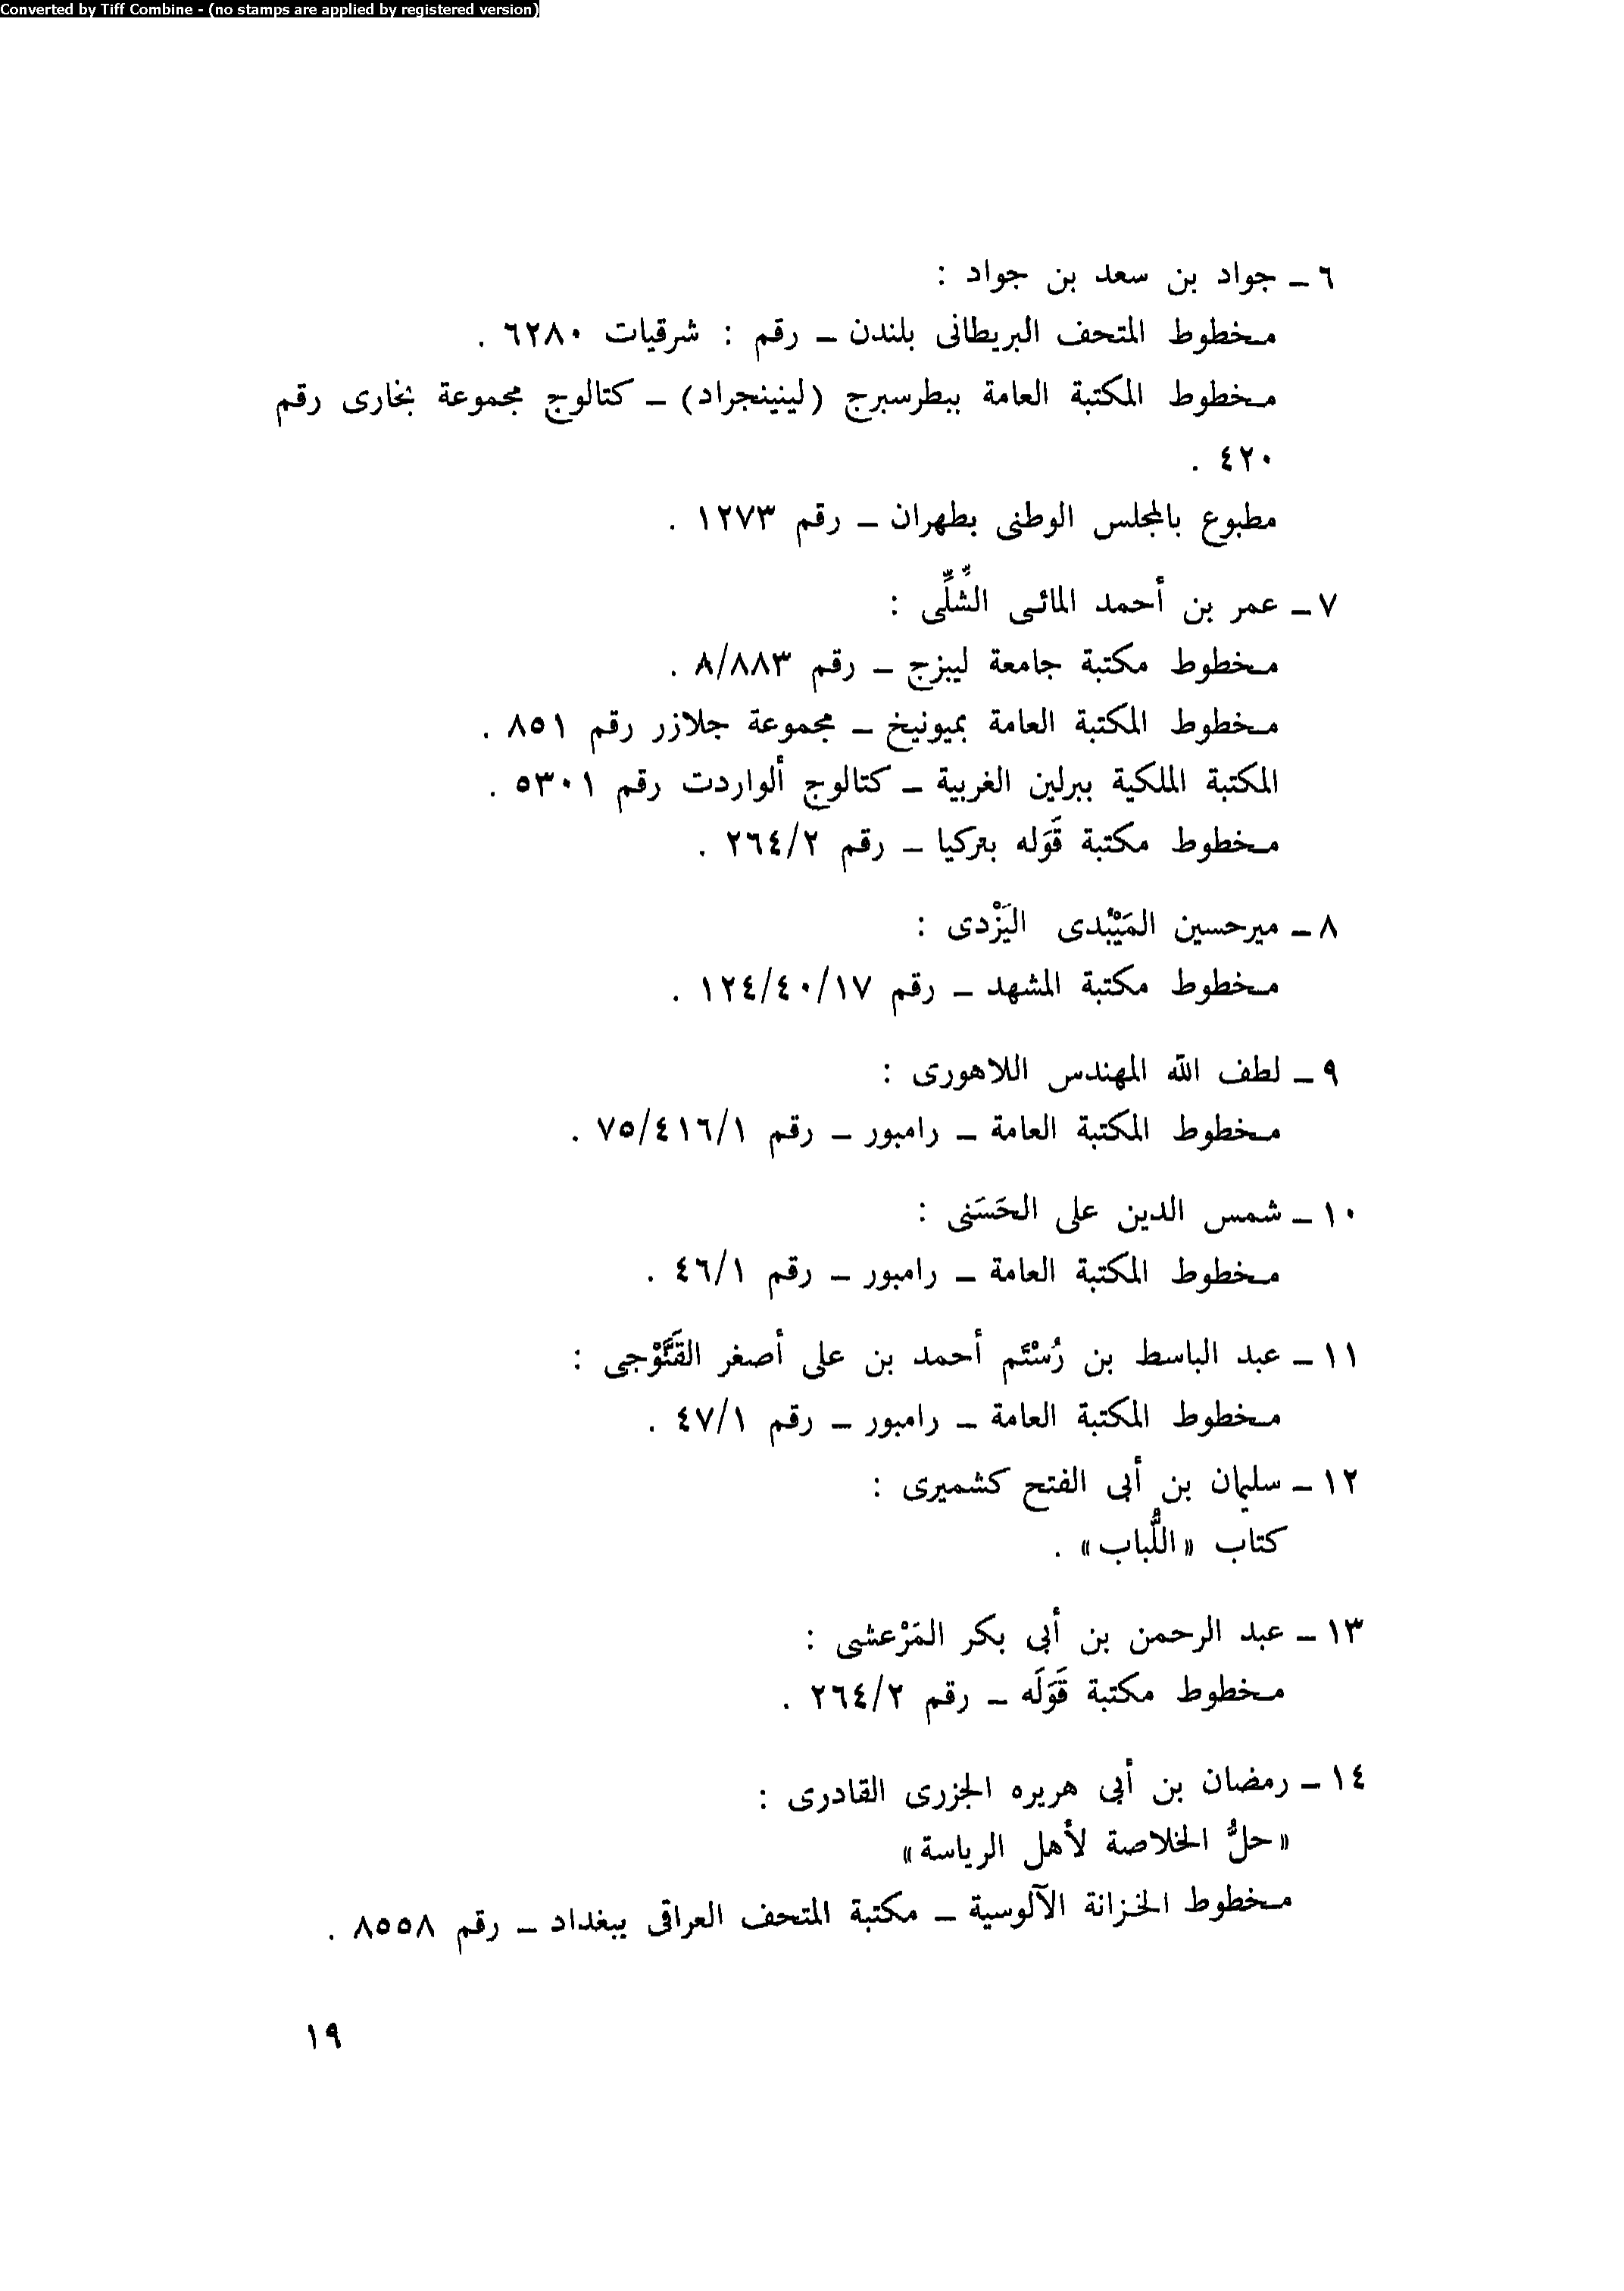 Converted by Tiff Combine - (no stamps are applied by registered version)
٦ ــ جواد بن سعد بن جواد :
مخطوط المتحف البريطانى بلندن ــ رقم : شرقيات ٦٢٨٠ .
مخطوط المكتبة العامة ببطرسبرج (لينينجراد) ــ كتالوج مجموعة بخارى رقم
٤٢٠ .
مطبوع بالمجلس الوطنى بطهران ــ رقم ١٢٧٣ .
٧ ــ عمر بن أحمد المائى الشِّلِّى :
مخطوط مكتبة جامعة ليبزج ــ رقم ٨/٨٨٣ .
مخطوط المكتبة العامة بميونيخ ــ مجموعة جلازر رقم ٨٥١ .
المكتبة الملكية ببرلين الغربية ــ كتالوج ألواردت رقم ٥٣٠١ .
مخطوط مكتبة قَوَله بتركيا ــ رقم ٢٦٤/٢ .
٨ ــ ميرحسين المَيْبُدى اليَزْدى :
مخطوط مكتبة المشهد ــ رقم ١٢٤/٤٠/١٧ .
٩ ــ لطف الله المهندس اللاهورى :
مخطوط المكتبة العامة ــ رامبور ــ رقم ٧٥/٤١٦/١ .
١٠ ــ شمس الدين على الحَسَنى :
مخطوط المكتبة العامة ــ رامبور ــ رقم ٤٦/١ .
١١ ــ عبد الباسط بن رُسْتَم أحمد بن على أصغر القَنَّوْجى :
مخطوط المكتبة العامة ــ رامبور ــ رقم ٤٧/١ .
١٢ ــ سليمان بن أبى الفتح كشميرى :
كتاب «اللُّباب» .
١٣ ــ عبد الرحمن بن أبى بكر المَرْعشى :
مخطوط مكتبة قَوَلَه ــ رقم ٢٦٤/٢ .
١٤ ــ رمضان بن أبى هريره الجزرى القادرى :
«حلُّ الخلاصة لأهل الرياسة»
مخطوط الخزانة الآلوسية ــ مكتبة المتحف العراقى ببغداد ــ رقم ٨٥٥٨ .
١٩